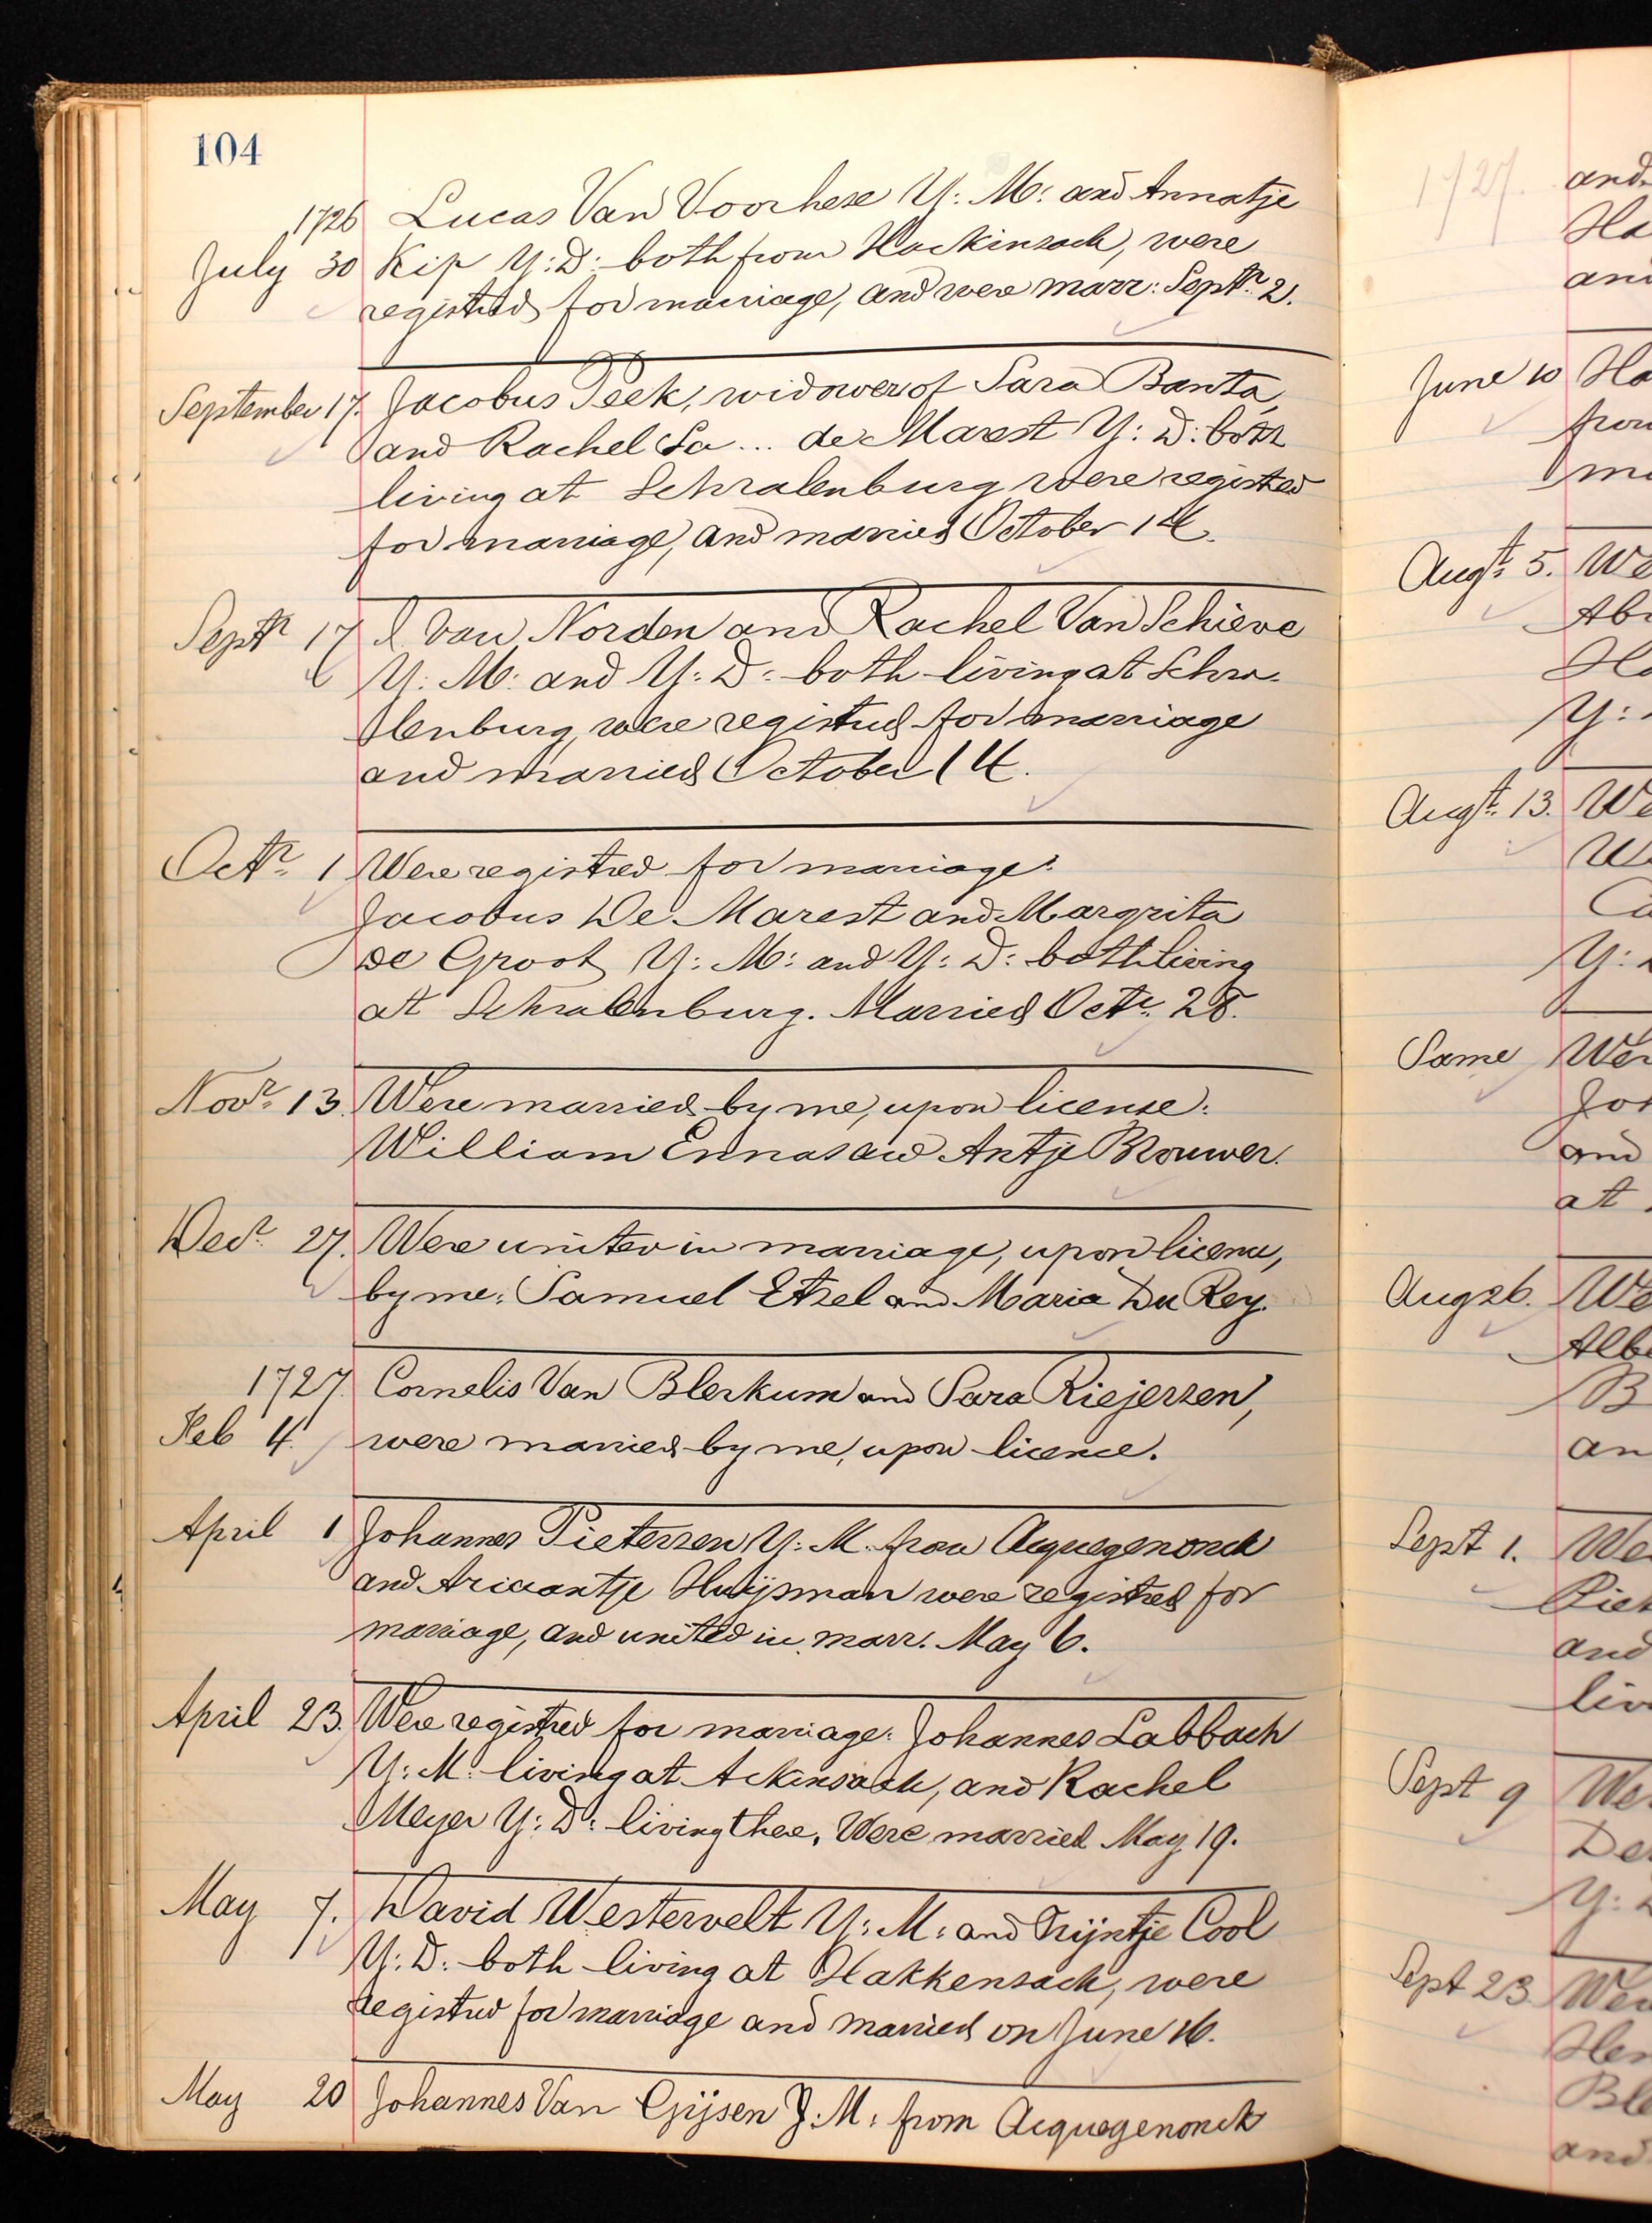 104
1726 Lucas Van Voorhese Y: M: and Annatje
July 30 Kip Y: D: both from Hackinsach, were
registred for marriage, and were marr: Septr. 2.
September 17. Jacobus Peek, widower of Sara Banta,
and Rachel La ... de Marest Y: D: both
living at Schralenburg were registred
for marriage, and married October 14.
Septr 17 Van Norden and Rachel Van Schieve
Y: M: and Y: D: both living at Schra-
lenburg, were registred for marriage
and married October 14.
Octr. 1 Were registred for marriage:
Jacobus De Marest and Margrita
de Groot Y: M: and Y: D: both living
at Schralenburg. Married Octr. 28.
Novr. 13. Were married by me, upon license:
William Ennas and Antje Brouwer.
Decr. 27. Were united in marriage, upon licence,
by me: Samuel Etsel and Maria Du Rey.
1727 Cornelis Van Blerkum and Sara Riejersen,
Feb 4. were married by me, upon licence.
April 1 Johannes Pietersen Y: M. from Acquegenonck
and Ariaantje Huijsman were registred for
marriage, and united in marr. May 6.
April 23. Were registred for marriage: Johannes Labbach
Y: M: living at Ackinsack, and Rachel
Meyer Y: D: living there. Were married May 19.
May 7. David Westervelt Y: M: and Trijntje Cool
Y: D: both living at Hakkensack, were
registred for marriage and married on June 16.
May 20 Johannes Van Gijsen J: M: from Acquegenonck
1727. and
Ha
and
June 10 Ha
from
ma
Augt. 5. We
Abr
Ha
Y:
Augt. 13. We
W
Ca
Y:
Same Wer
Joh
and
at
Aug 26. We
Albe
B
an
Sept 1. We
Piet
and
liv
Sept 9 Wer
De
Y:
Sept 23 Wer
Hen
Ble
and